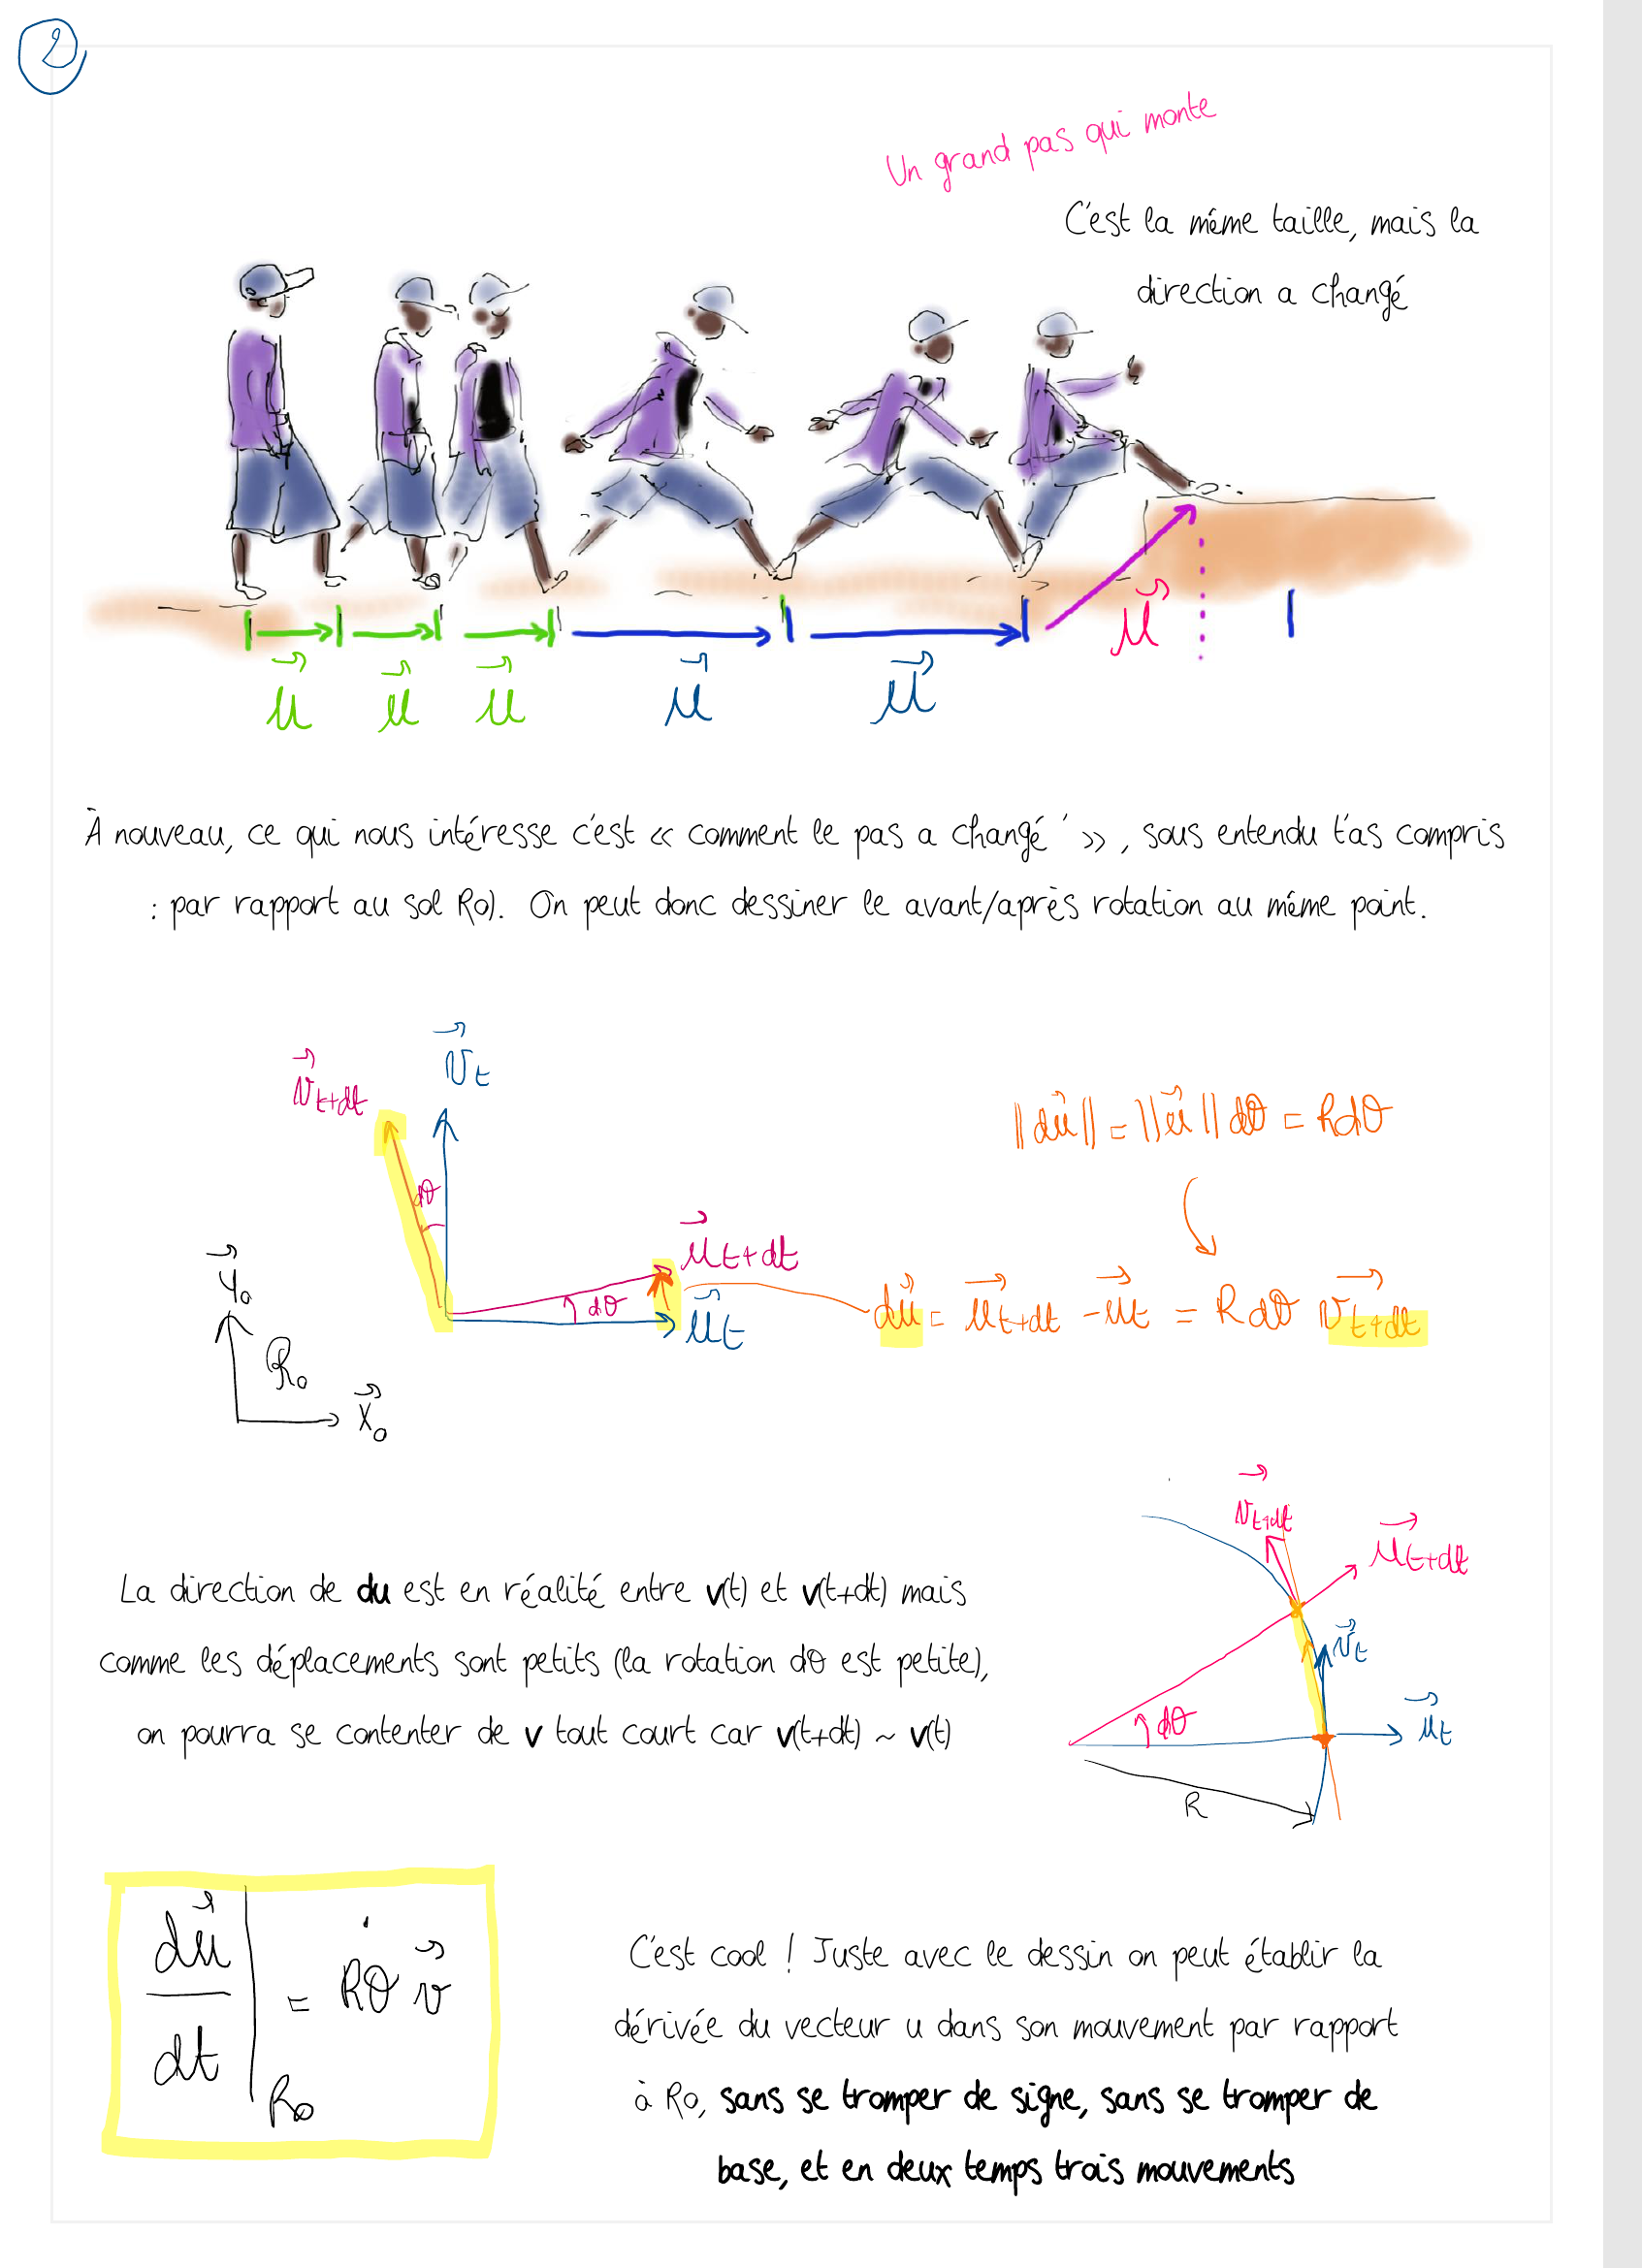 2
Un grand pas qui monte
C'est la même taille, mais la
direction a changé
u⃗ u⃗ u⃗ u⃗ u⃗ u⃗
À nouveau, ce qui nous intéresse c'est « comment le pas a changé ' », sous entendu t'as compris
: par rapport au sol Ro). On peut donc dessiner le avant/après rotation au même point.
v⃗t+dt v⃗t
||du⃗|| = ||u⃗|| dθ = Rdθ
dθ
u⃗t+dt
dθ
u⃗t
du⃗ = u⃗t+dt - u⃗t = R dθ v⃗t+dt
y⃗o
Ro
x⃗o
v⃗t+dt
u⃗t+dt
v⃗t
dθ
u⃗t
R
La direction de du est en réalité entre v(t) et v(t+dt) mais
comme les déplacements sont petits (la rotation dθ est petite),
on pourra se contenter de v tout court car v(t+dt) ~ v(t)
du⃗/dt |Ro = Rθ̇ v⃗
C'est cool ! Juste avec le dessin on peut établir la
dérivée du vecteur u dans son mouvement par rapport
à Ro, sans se tromper de signe, sans se tromper de
base, et en deux temps trois mouvements